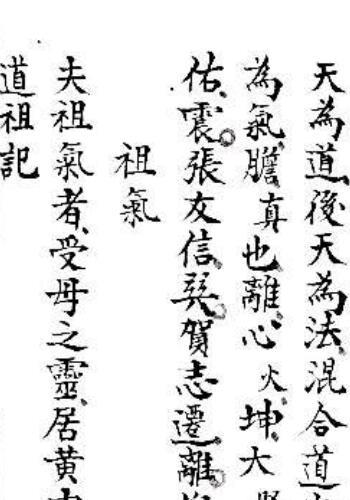 天為道後天為法混合道
為氣膽真也離心火坤大
佑震張友信巽賀志遷離
祖氣
夫祖氣者受母之靈居黃
道祖記